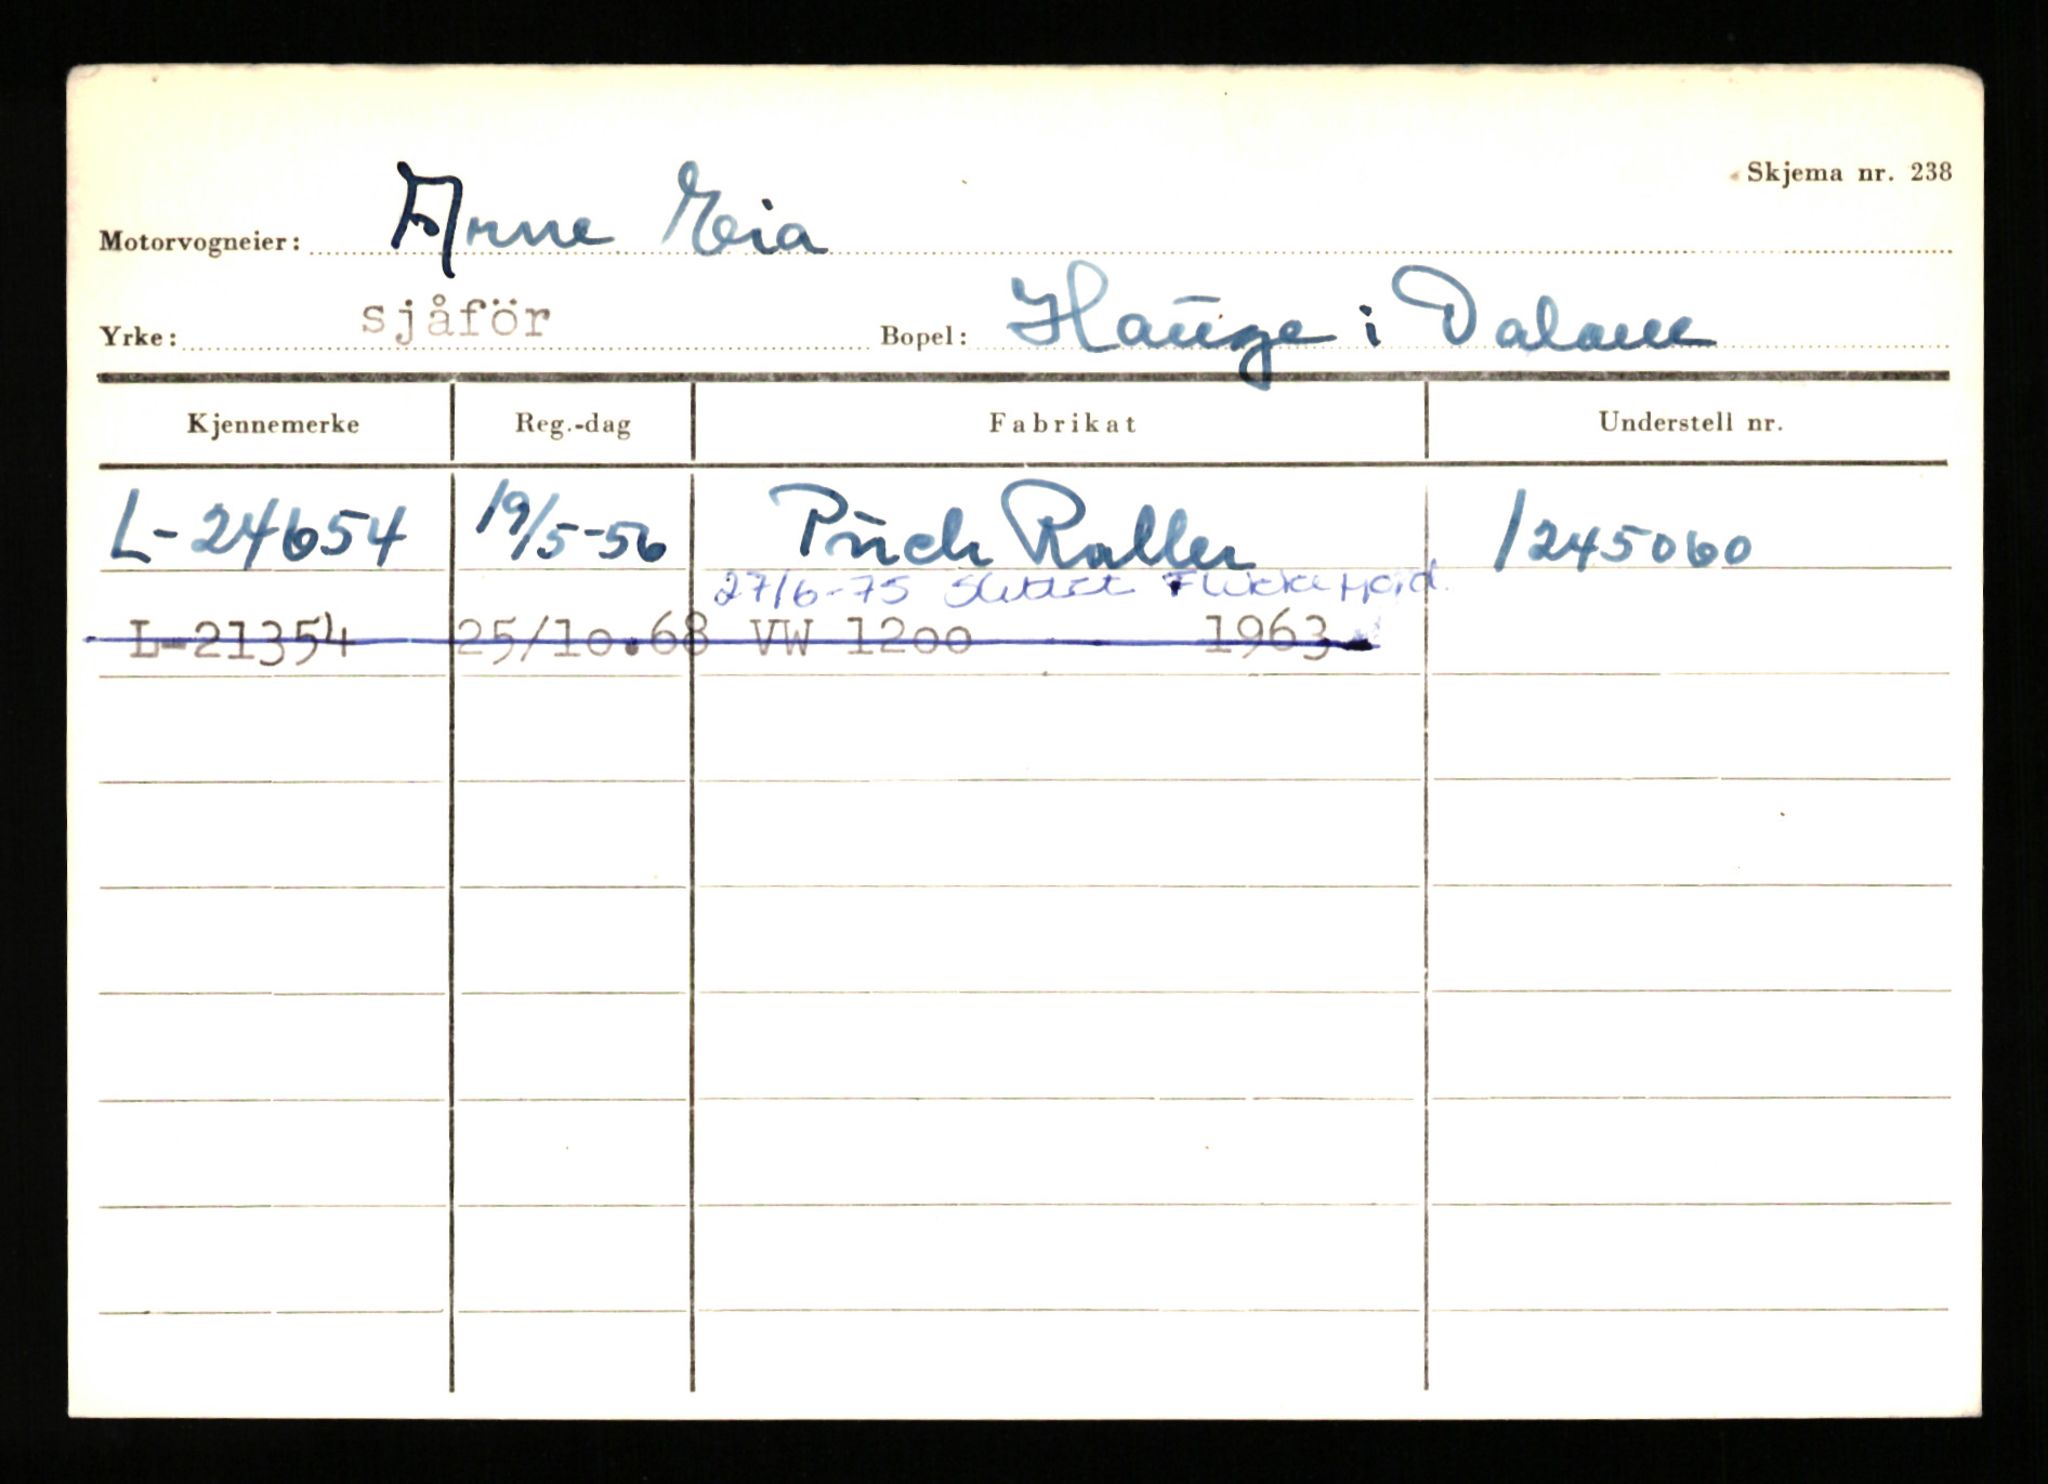 Skjema nr. 238
Motorvogneier: Arne Eia
Yrke: sjåför Bopel: Hauge i Dalane
Kjennemerke Reg.-dag Fabrikat Understell nr.
L-24654 19/5-56 Puch Roller 1245060
27/6-75 Slettet Flekkefjord.
L-21354 25/10.68 VW 1200 1963